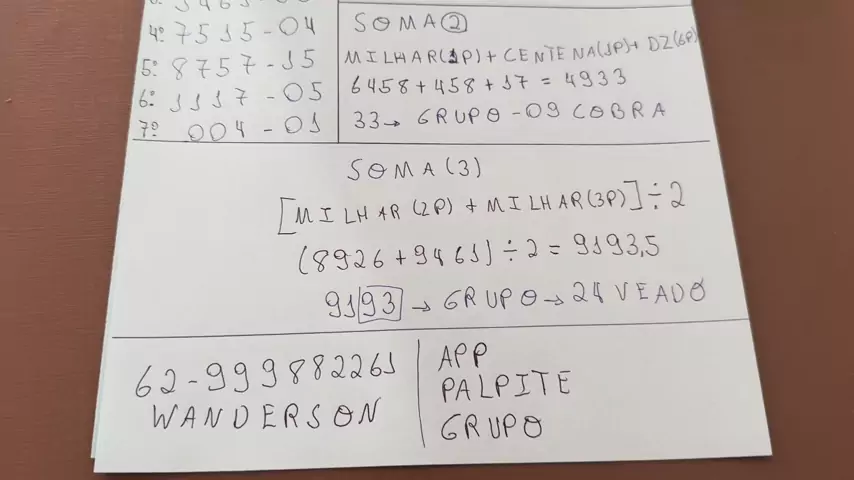 4º 7515-04
5º 8757-15
6º 1117-05
7º 004-01
SOMA 2
MILHAR(1P)+ CENTENA(1P)+ DZ(6P)
6458+458+17 = 4933
33→ GRUPO-09 COBRA
SOMA(3)
[MILHAR(2P) + MILHAR(3P)]÷2
(8926+9461)÷2=9193,5
9193→GRUPO→24 VEADO
62-999882261
WANDERSON
APP
PALPITE
GRUPO